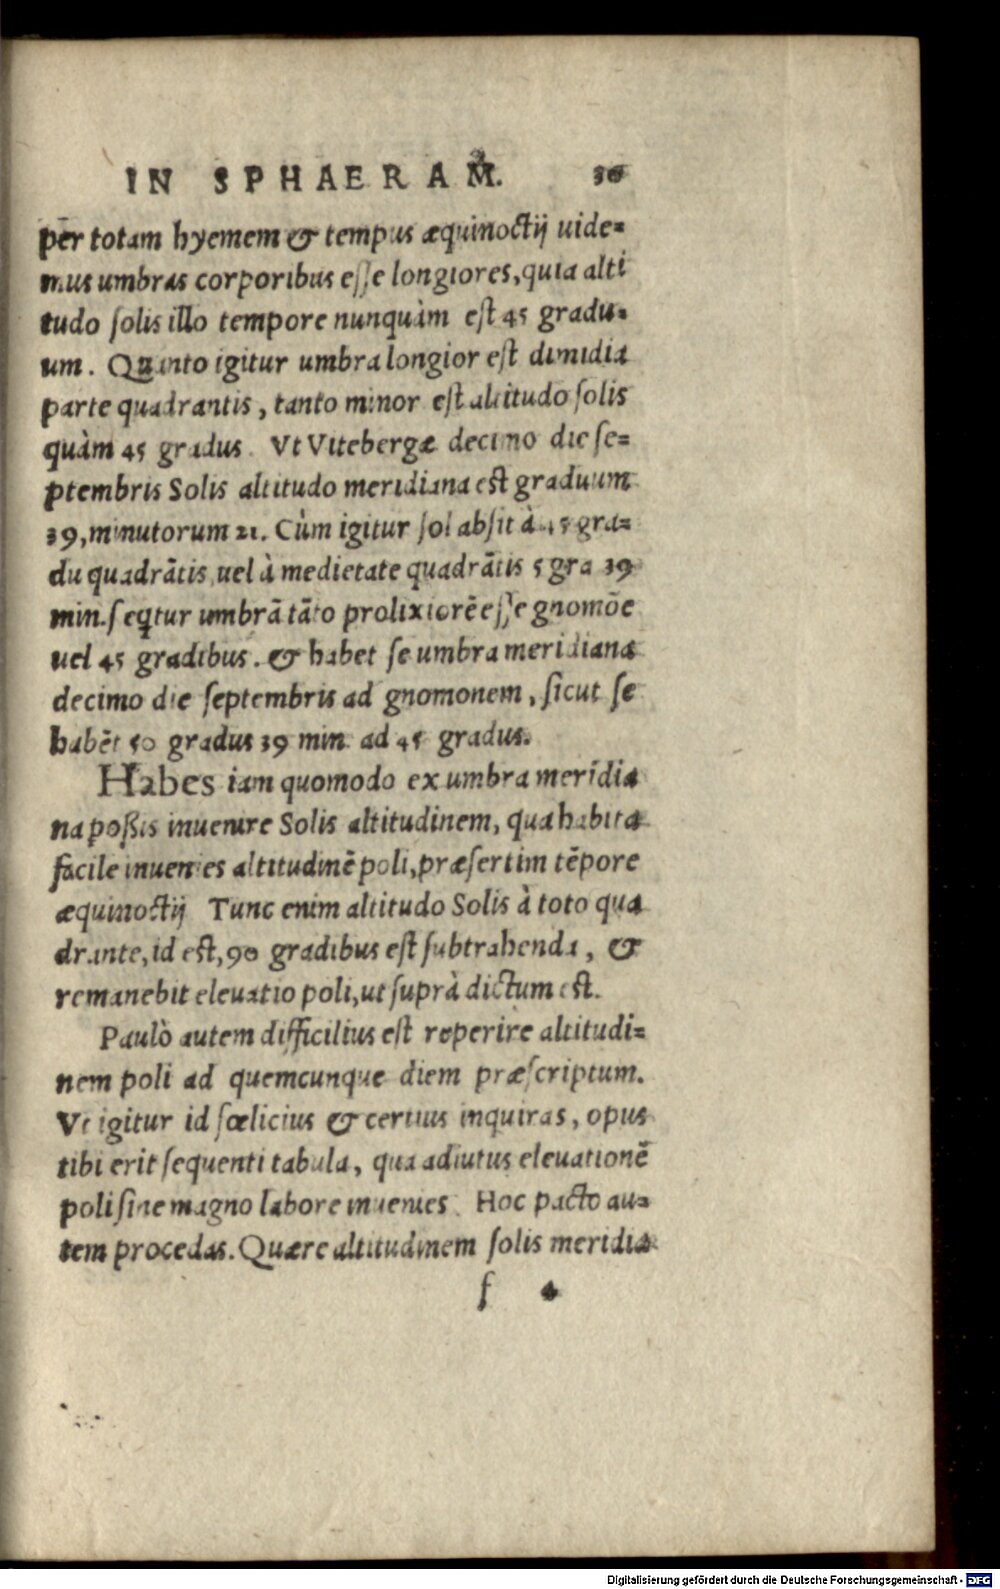 IN SPHAERAM. 36
per totam hyemem & tempus æquinoctij uide=
mus umbras corporibus esse longiores, quia alti
tudo solis illo tempore nunquàm est 45 gradu=
um. Quanto igitur umbra longior est dimidia
parte quadrantis, tanto minor est altitudo solis
quàm 45 gradus. Vt Vitebergæ decimo die se=
ptembris Solis altitudo meridiana est graduum
39, minutorum 21. Cùm igitur sol absit à 45 gra=
du quadrãtis, uel à medietate quadrãtis 5 gra 39
min. seqtur umbrã tãto prolixiorẽ esse gnomõe
uel 45 gradibus. & habet se umbra meridiana
decimo die septembris ad gnomonem, sicut se
habẽt 50 gradus 39 min. ad 45 gradus.
Habes iam quomodo ex umbra meridia
na poßis inuenire Solis altitudinem, qua habita
facile inuenies altitudinẽ poli, præsertim tẽpore
æquinoctij Tunc enim altitudo Solis à toto qua
drante, id est, 90 gradibus est subtrahenda, &
remanebit eleuatio poli, ut suprà dictum est.
Paulò autem difficilius est reperire altitudi=
nem poli ad quemcunque diem præscriptum.
Vt igitur id fœlicius & certius inquiras, opus
tibi erit sequenti tabula, qua adiutus eleuationẽ
poli sine magno labore inuenies. Hoc pacto au=
tem procedas. Quære altitudinem solis meridia
f 4
Digitalisierung gefördert durch die Deutsche Forschungsgemeinschaft - DFG